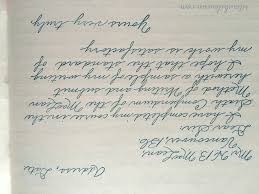 Address, Date
Mr. H. B. MacLean,
Vancouver, B.C.
Dear Sir:
I have completed my course in the
Compendium of the MacLean
Method of Writing and submit
herewith a sample of my writing
I hope that the standard of
my work is satisfactory
Yours very truly,